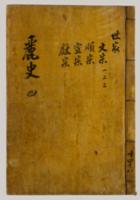 世家
文宗 一二三
順宗
宣宗
獻宗
麗史 四